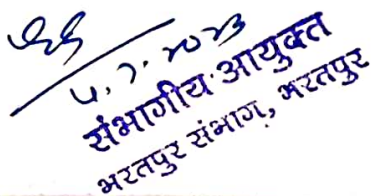 4.7.2023
संभागीय आयुक्त
भरतपुर संभाग, भरतपुर